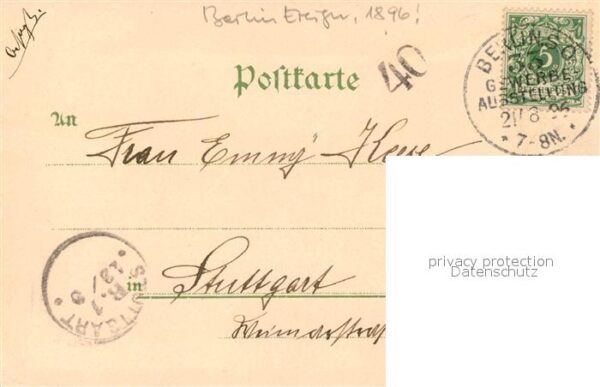 Berlin Ereign. 1896!
Postkarte
40
5
BERLIN SO
GEWERBE-
AUSSTELLUNG
21/8 96
* 7-8N. *
An
Frau Emmy
in Stuttgart
STUTTGART
privacy protection
Datenschutz